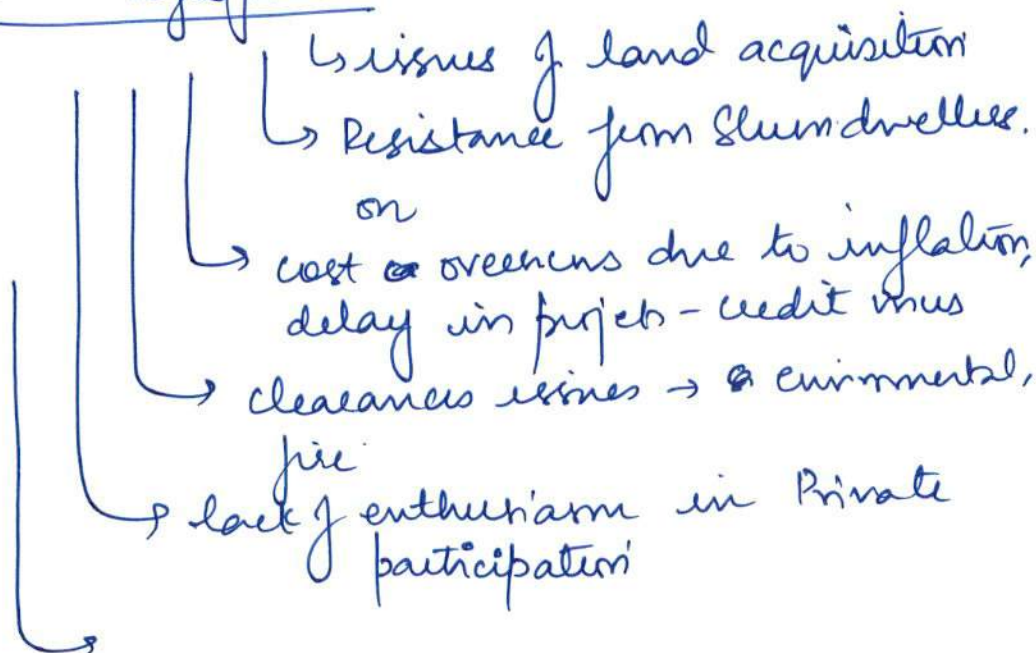 ↳ issues of land acquisition
→ Resistance from Slum dwellers.
on
→ cost overruns due to inflation,
delay in projects - credit issues
→ clearances issues → environmental,
fire
→ lack of enthusiasm in Private
participation